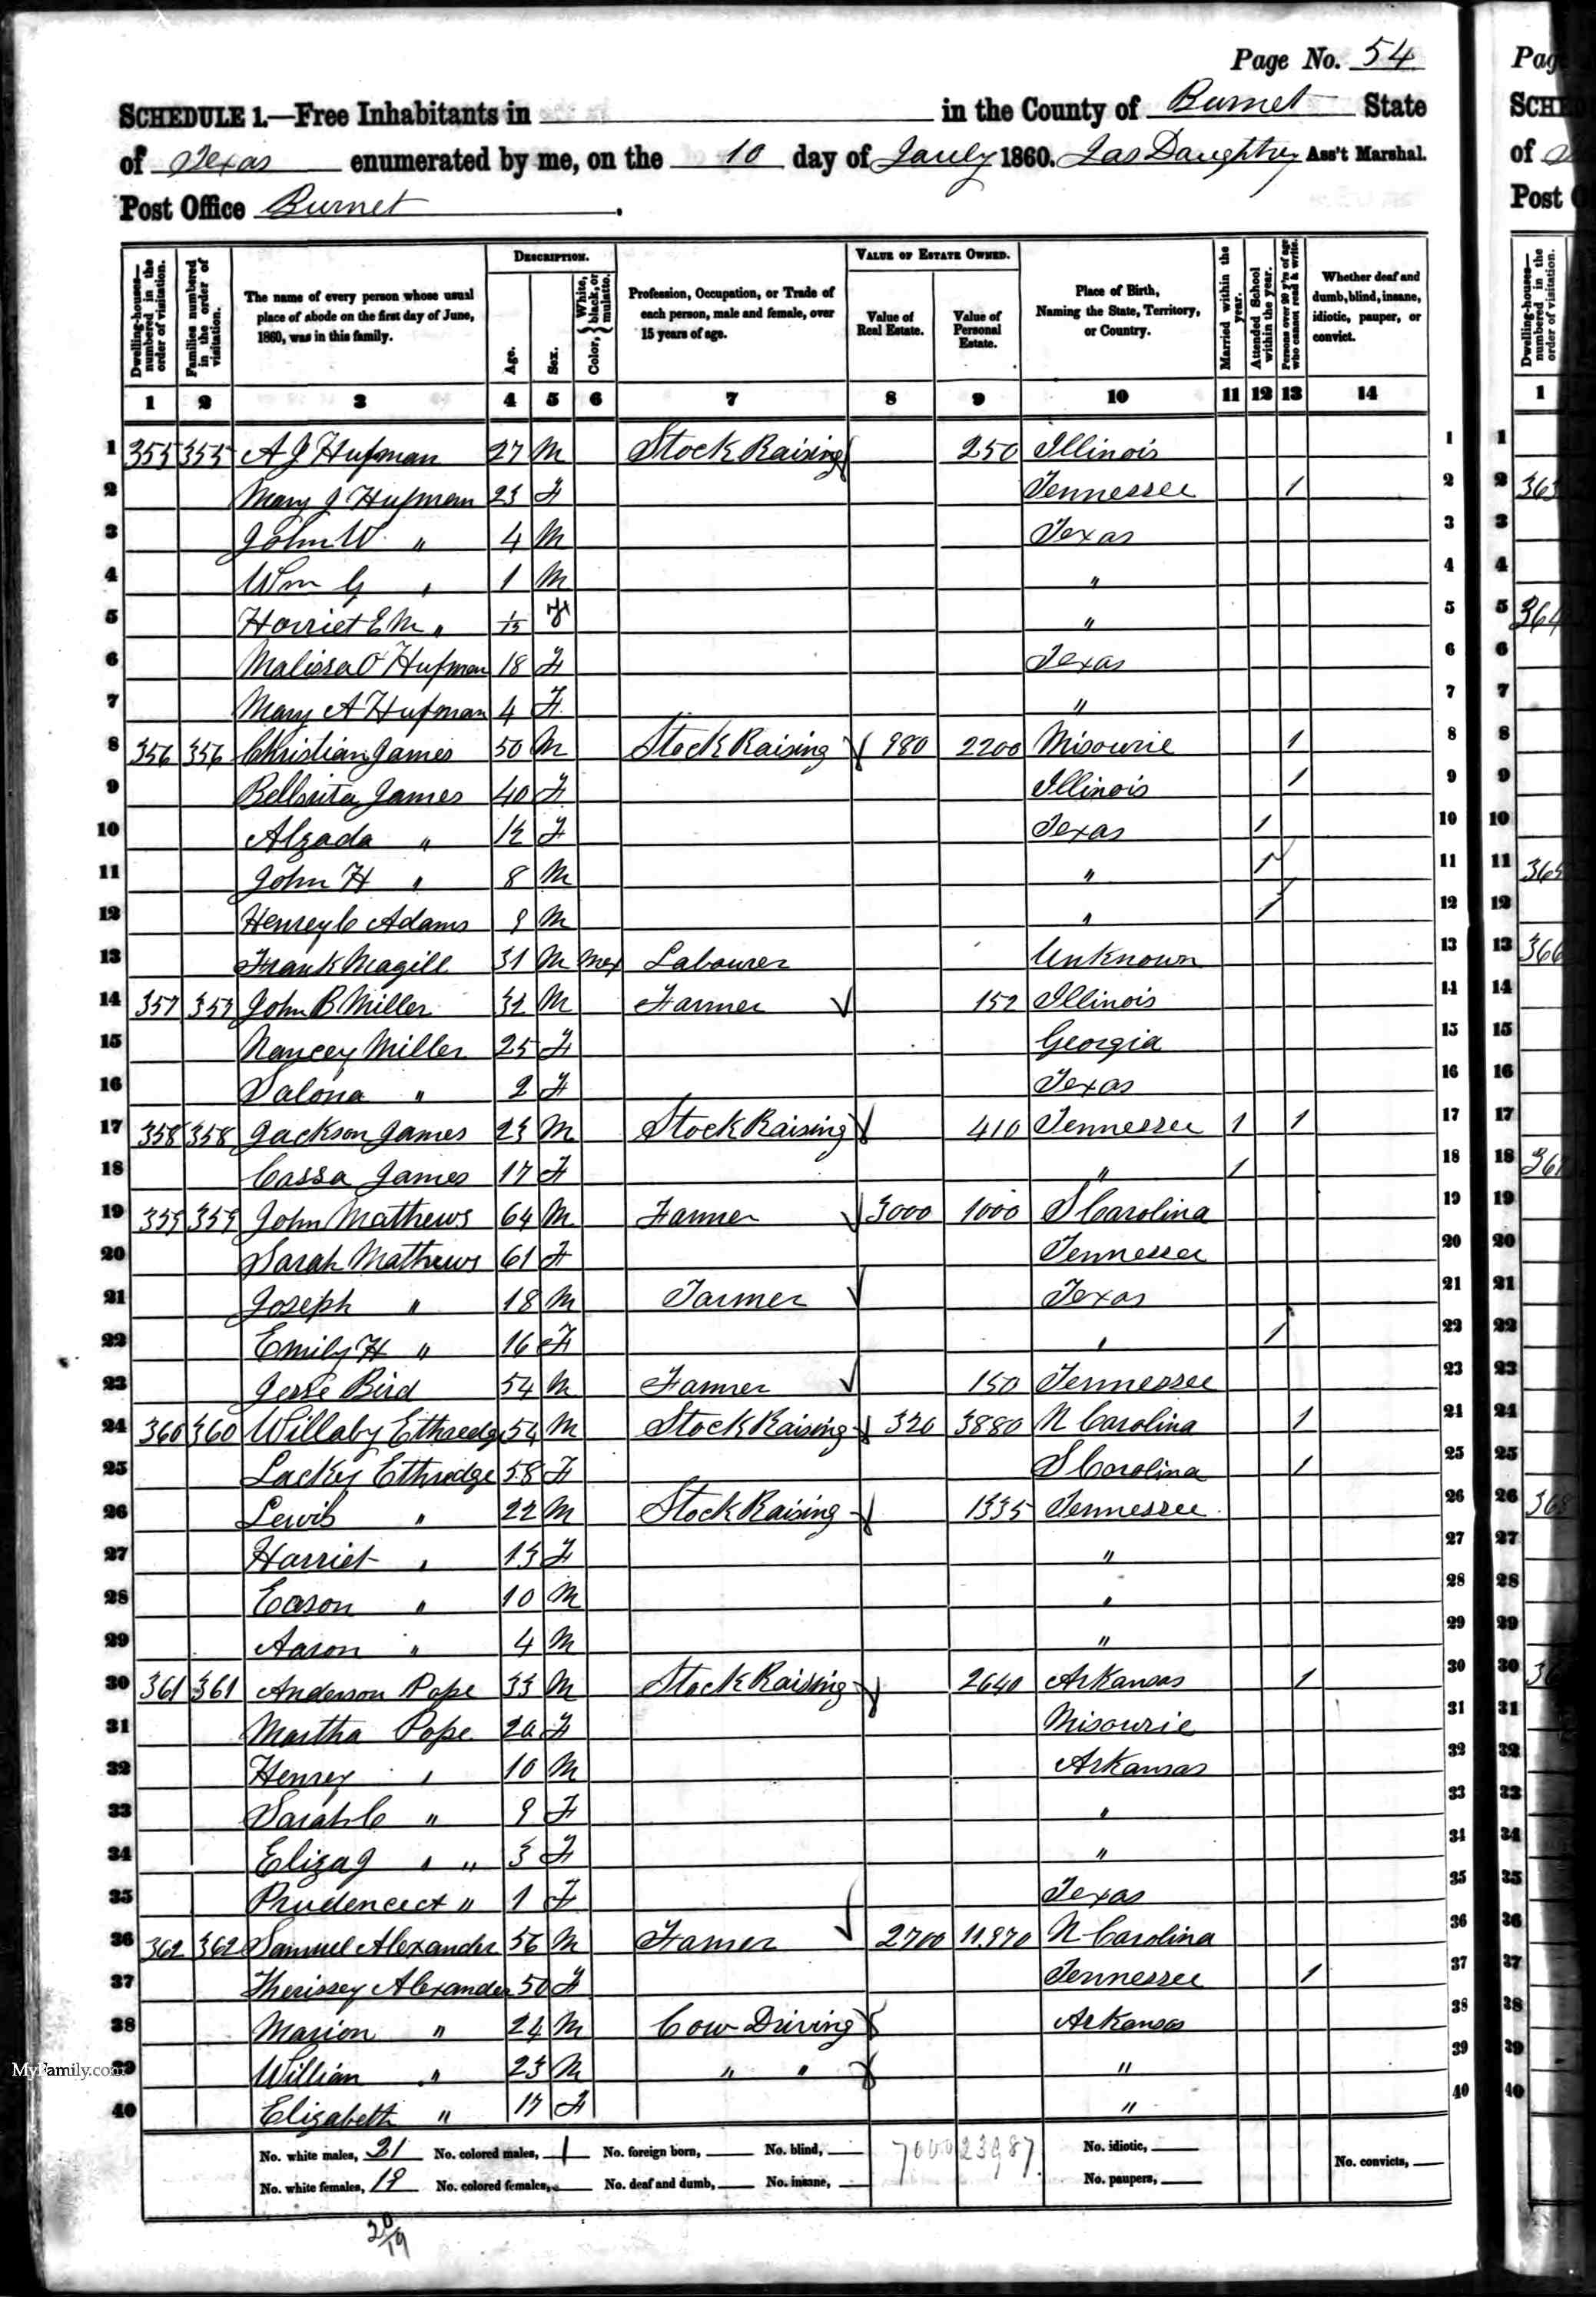 Page No. 54
SCHEDULE 1.—Free Inhabitants in in the County of Burnet State
of Texas enumerated by me, on the 10 day of 1860. Jas Daughtrey Ass't Marshal.
Post Office Burnet .
Dwelling-houses—numbered in the order of visitation. Families numbered in the order of visitation. The name of every person whose usual place of abode on the first day of June, 1860, was in this family. DESCRIPTION. Age. Sex. Color, { White, black, or mulatto. Profession, Occupation, or Trade of each person, male and female, over 15 years of age. VALUE OF ESTATE OWNED. Value of Real Estate. Value of Personal Estate. Place of Birth, Naming the State, Territory, or Country. Married within the year. Attended School within the year. Persons over 20 y'rs of age who cannot read & write. Whether deaf and dumb, blind, insane, idiotic, pauper, or convict.
1 2 3 4 5 6 7 8 9 10 11 12 13 14
1 355 355 A J Hufman 27 M Stock Raising 250 Illinois 1
2 Mary J Hufman 23 F Tennessee 1 2
3 John W " 4 M Texas 3
4 Wm G " 1 M " 4
5 Harriet E M " F " 5
6 Malissa O Hufman 18 F Texas 6
7 Mary A Hufman 4 F " 7
8 356 356 Christian James 50 M Stock Raising 980 2200 Misourie 1 8
9 James 40 F Illinois 1 9
10 Alzada " F Texas 1 10
11 John H " 8 M " 1 11
12 Henrey C Adams 9 M " 1 12
13 Frank Magill 31 M Mex Labourer Unknown 13
14 357 357 John B Miller 32 M Farmer 152 Illinois 14
15 Nancey Miller 25 F Georgia 15
16 Salona " 2 F Texas 16
17 358 358 Jackson James 23 M Stock Raising 410 Tennessee 1 1 17
18 Cassa James 17 F " 1 18
19 359 359 John Mathews 64 M Farmer 3000 1000 S Carolina 19
20 Sarah Mathews 61 F Tennessee 20
21 Joseph " 18 M Farmer Texas 21
22 Emily H " 16 F " 1 22
23 Jesse Bird 54 M Farmer 150 Tennessee 23
24 360 360 Willaby Ethredge 54 M Stock Raising 320 3880 N Carolina 1 24
25 Lackey Ethredge 58 F S Carolina 1 25
26 Lewis " 22 M Stock Raising 1335 Tennessee 26
27 Harriet " 13 F " 27
28 Eason " 10 M " 28
29 Aaron " 4 M " 29
30 361 361 Anderson Pope 33 M Stock Raising 2640 Arkansas 1 30
31 Martha Pope F Misourie 31
32 Henrey " 10 M Arkansas 32
33 Sarah C " 9 F " 33
34 Eliza J " " 3 F " 34
35 " 1 F Texas 35
36 362 362 Samuel Alexander 56 M Farmer 2700 11,970 N Carolina 36
37 Therissey Alexander 50 F Tennessee 1 37
38 Marion " 24 M Cow Driving Arkansas 38
39 William " 23 M " " " 39
40 Elizabeth " 17 F " 40
No. white males, 21 No. colored males, 1 No. foreign born, No. blind, 7000 23987 No. idiotic, No. convicts,
No. white females, 19 No. colored females, No. deaf and dumb, No. insane, No. paupers,
20/19
MyFamily.com
Page
SCHE
of
Post O
Dwelling-houses—numbered in the order of visitation.
1
1
2 363
3
4
5 364
6
7
8
9
10
11 365
12
13 366
14
15
16
17
18 367
19
20
21
22
23
24
25
26 368
27
28
29
30 36
31
32
33
34
35
36
37
38
39
40